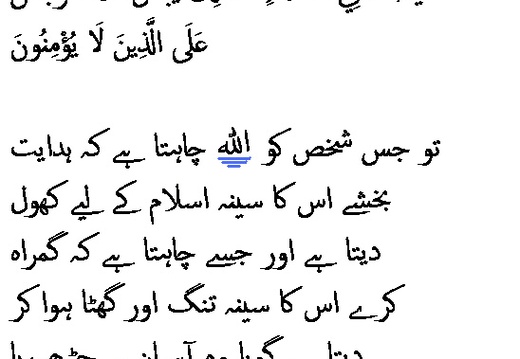 عَلَى الَّذِينَ لَا يُؤْمِنُونَ
تو جس شخص کو الله چاہتا ہے کہ ہدایت
بخشے اس کا سینہ اسلام کے لیے کھول
دیتا ہے اور جسے چاہتا ہے کہ گمراہ
کرے اس کا سینہ تنگ اور گھٹا ہوا کر